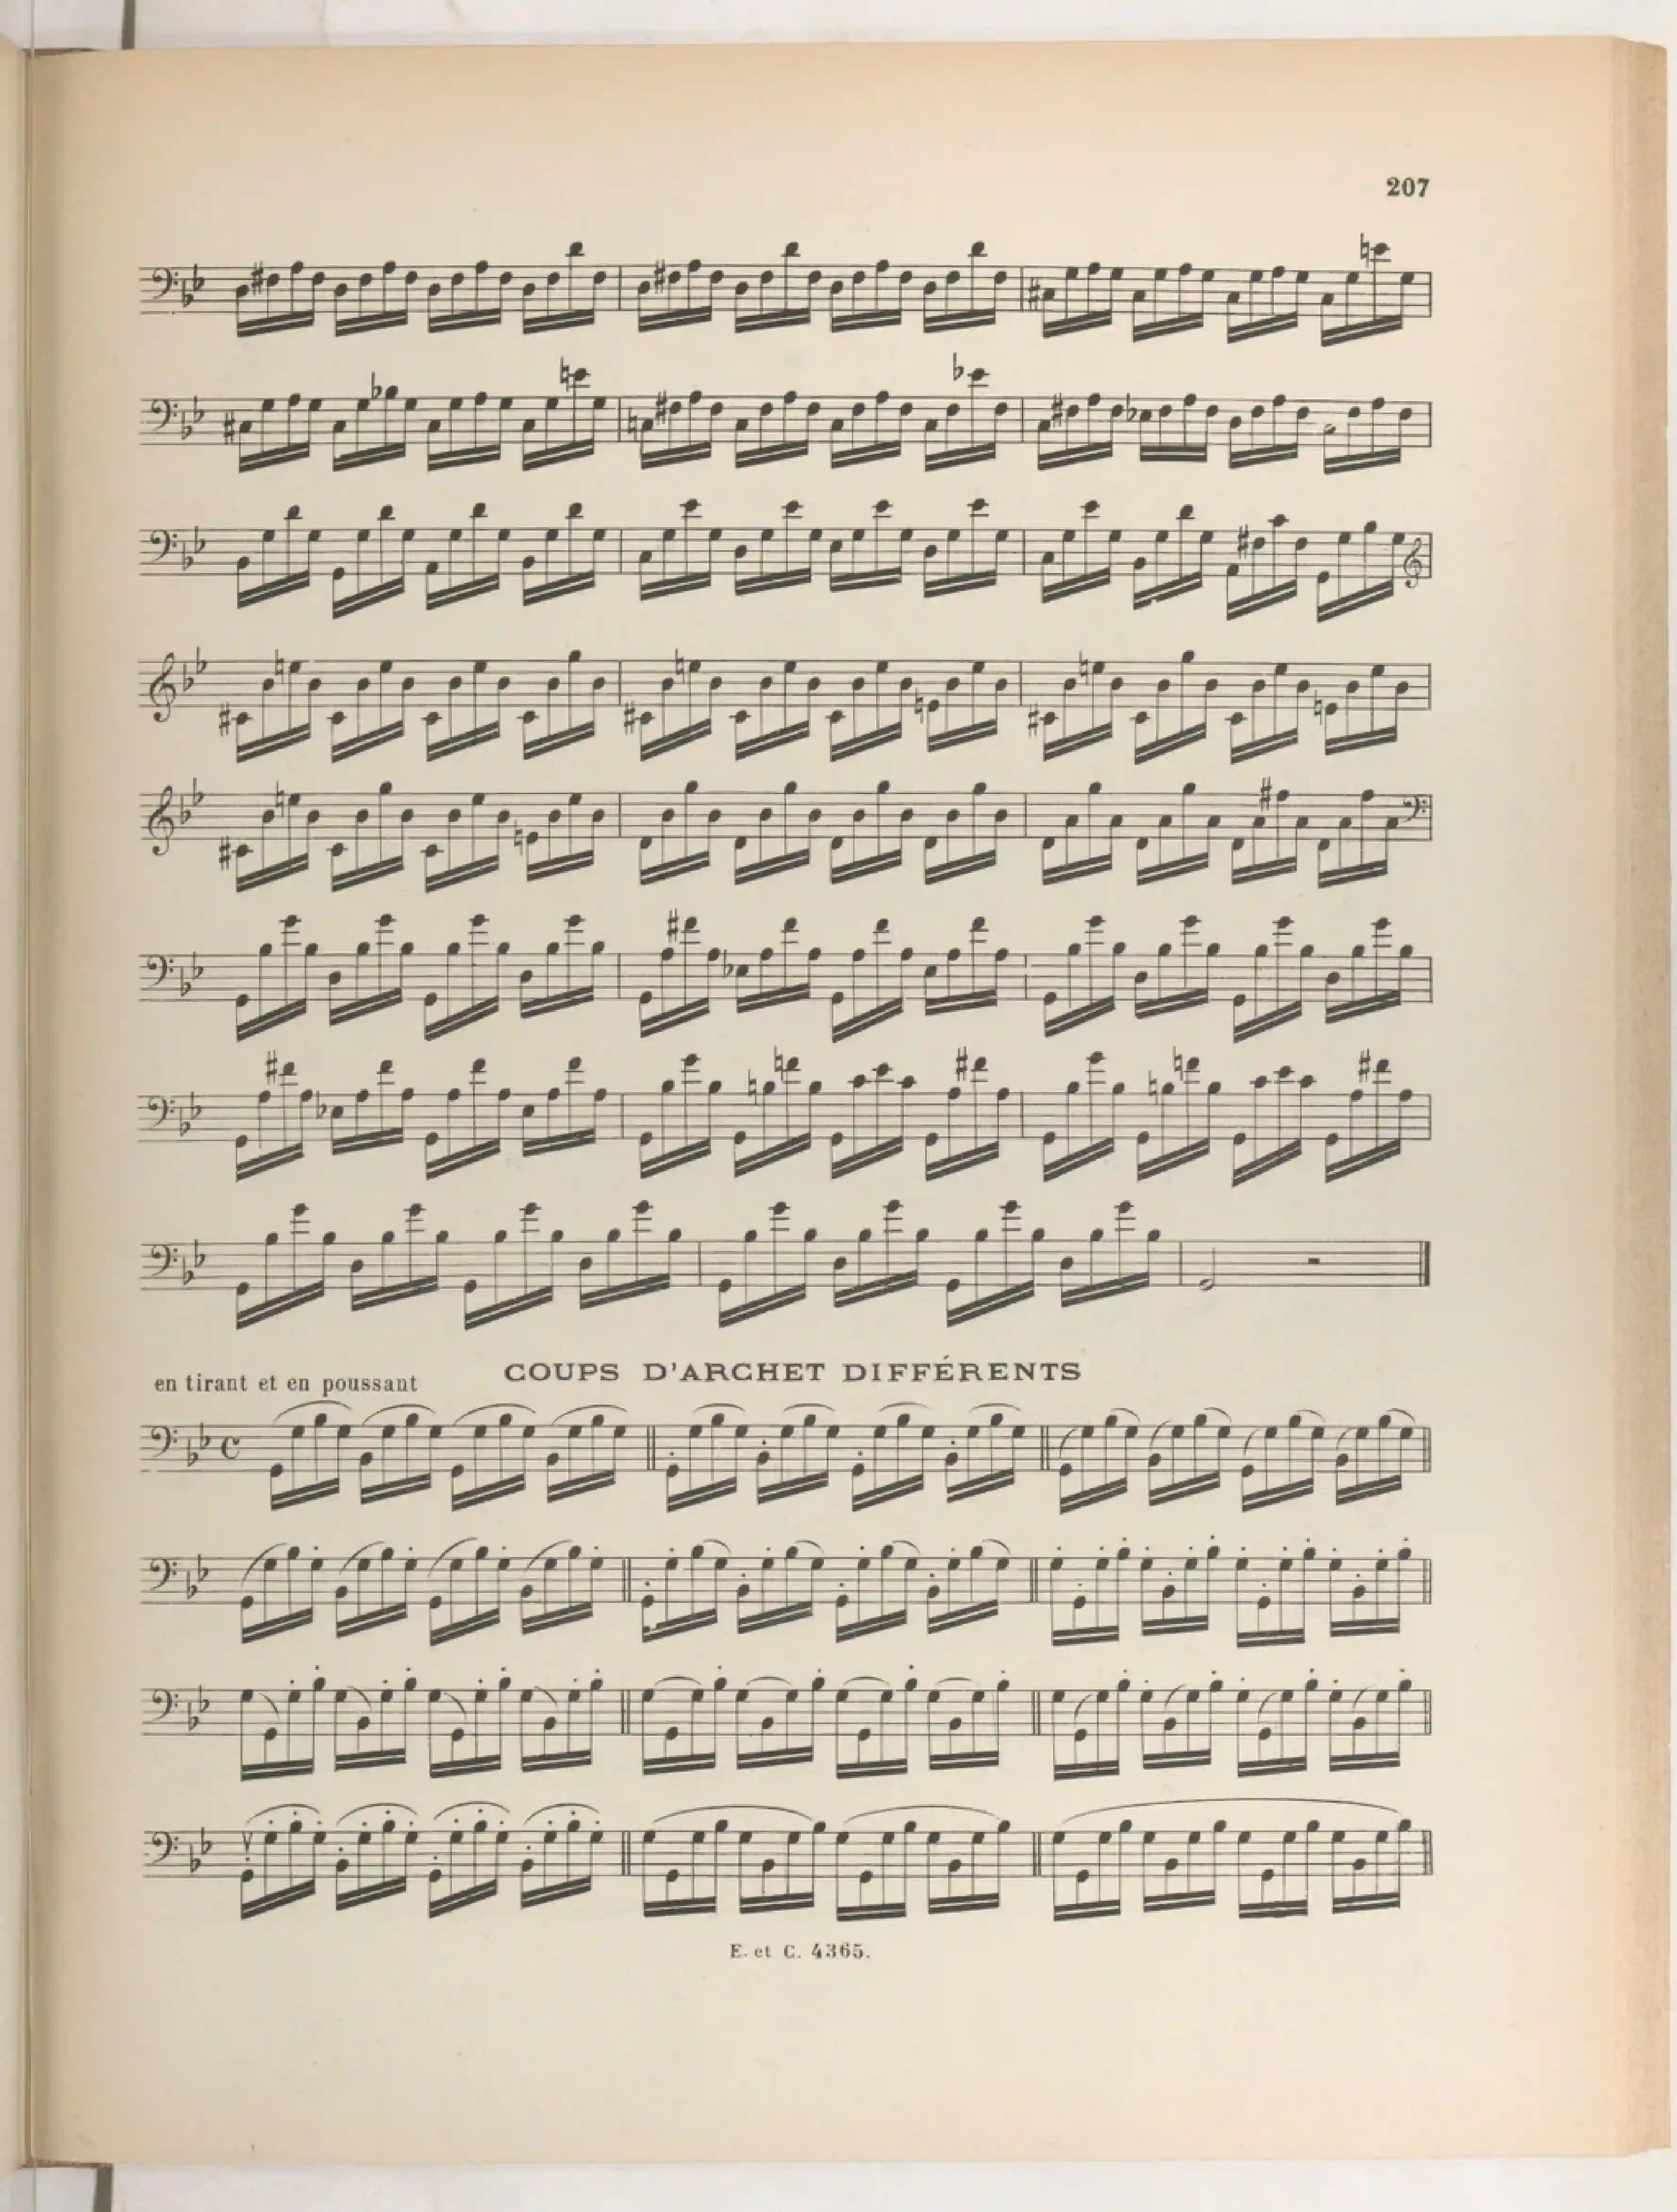 207
COUPS D'ARCHET DIFFÉRENTS
en tirant et en poussant
E. et C. 4365.